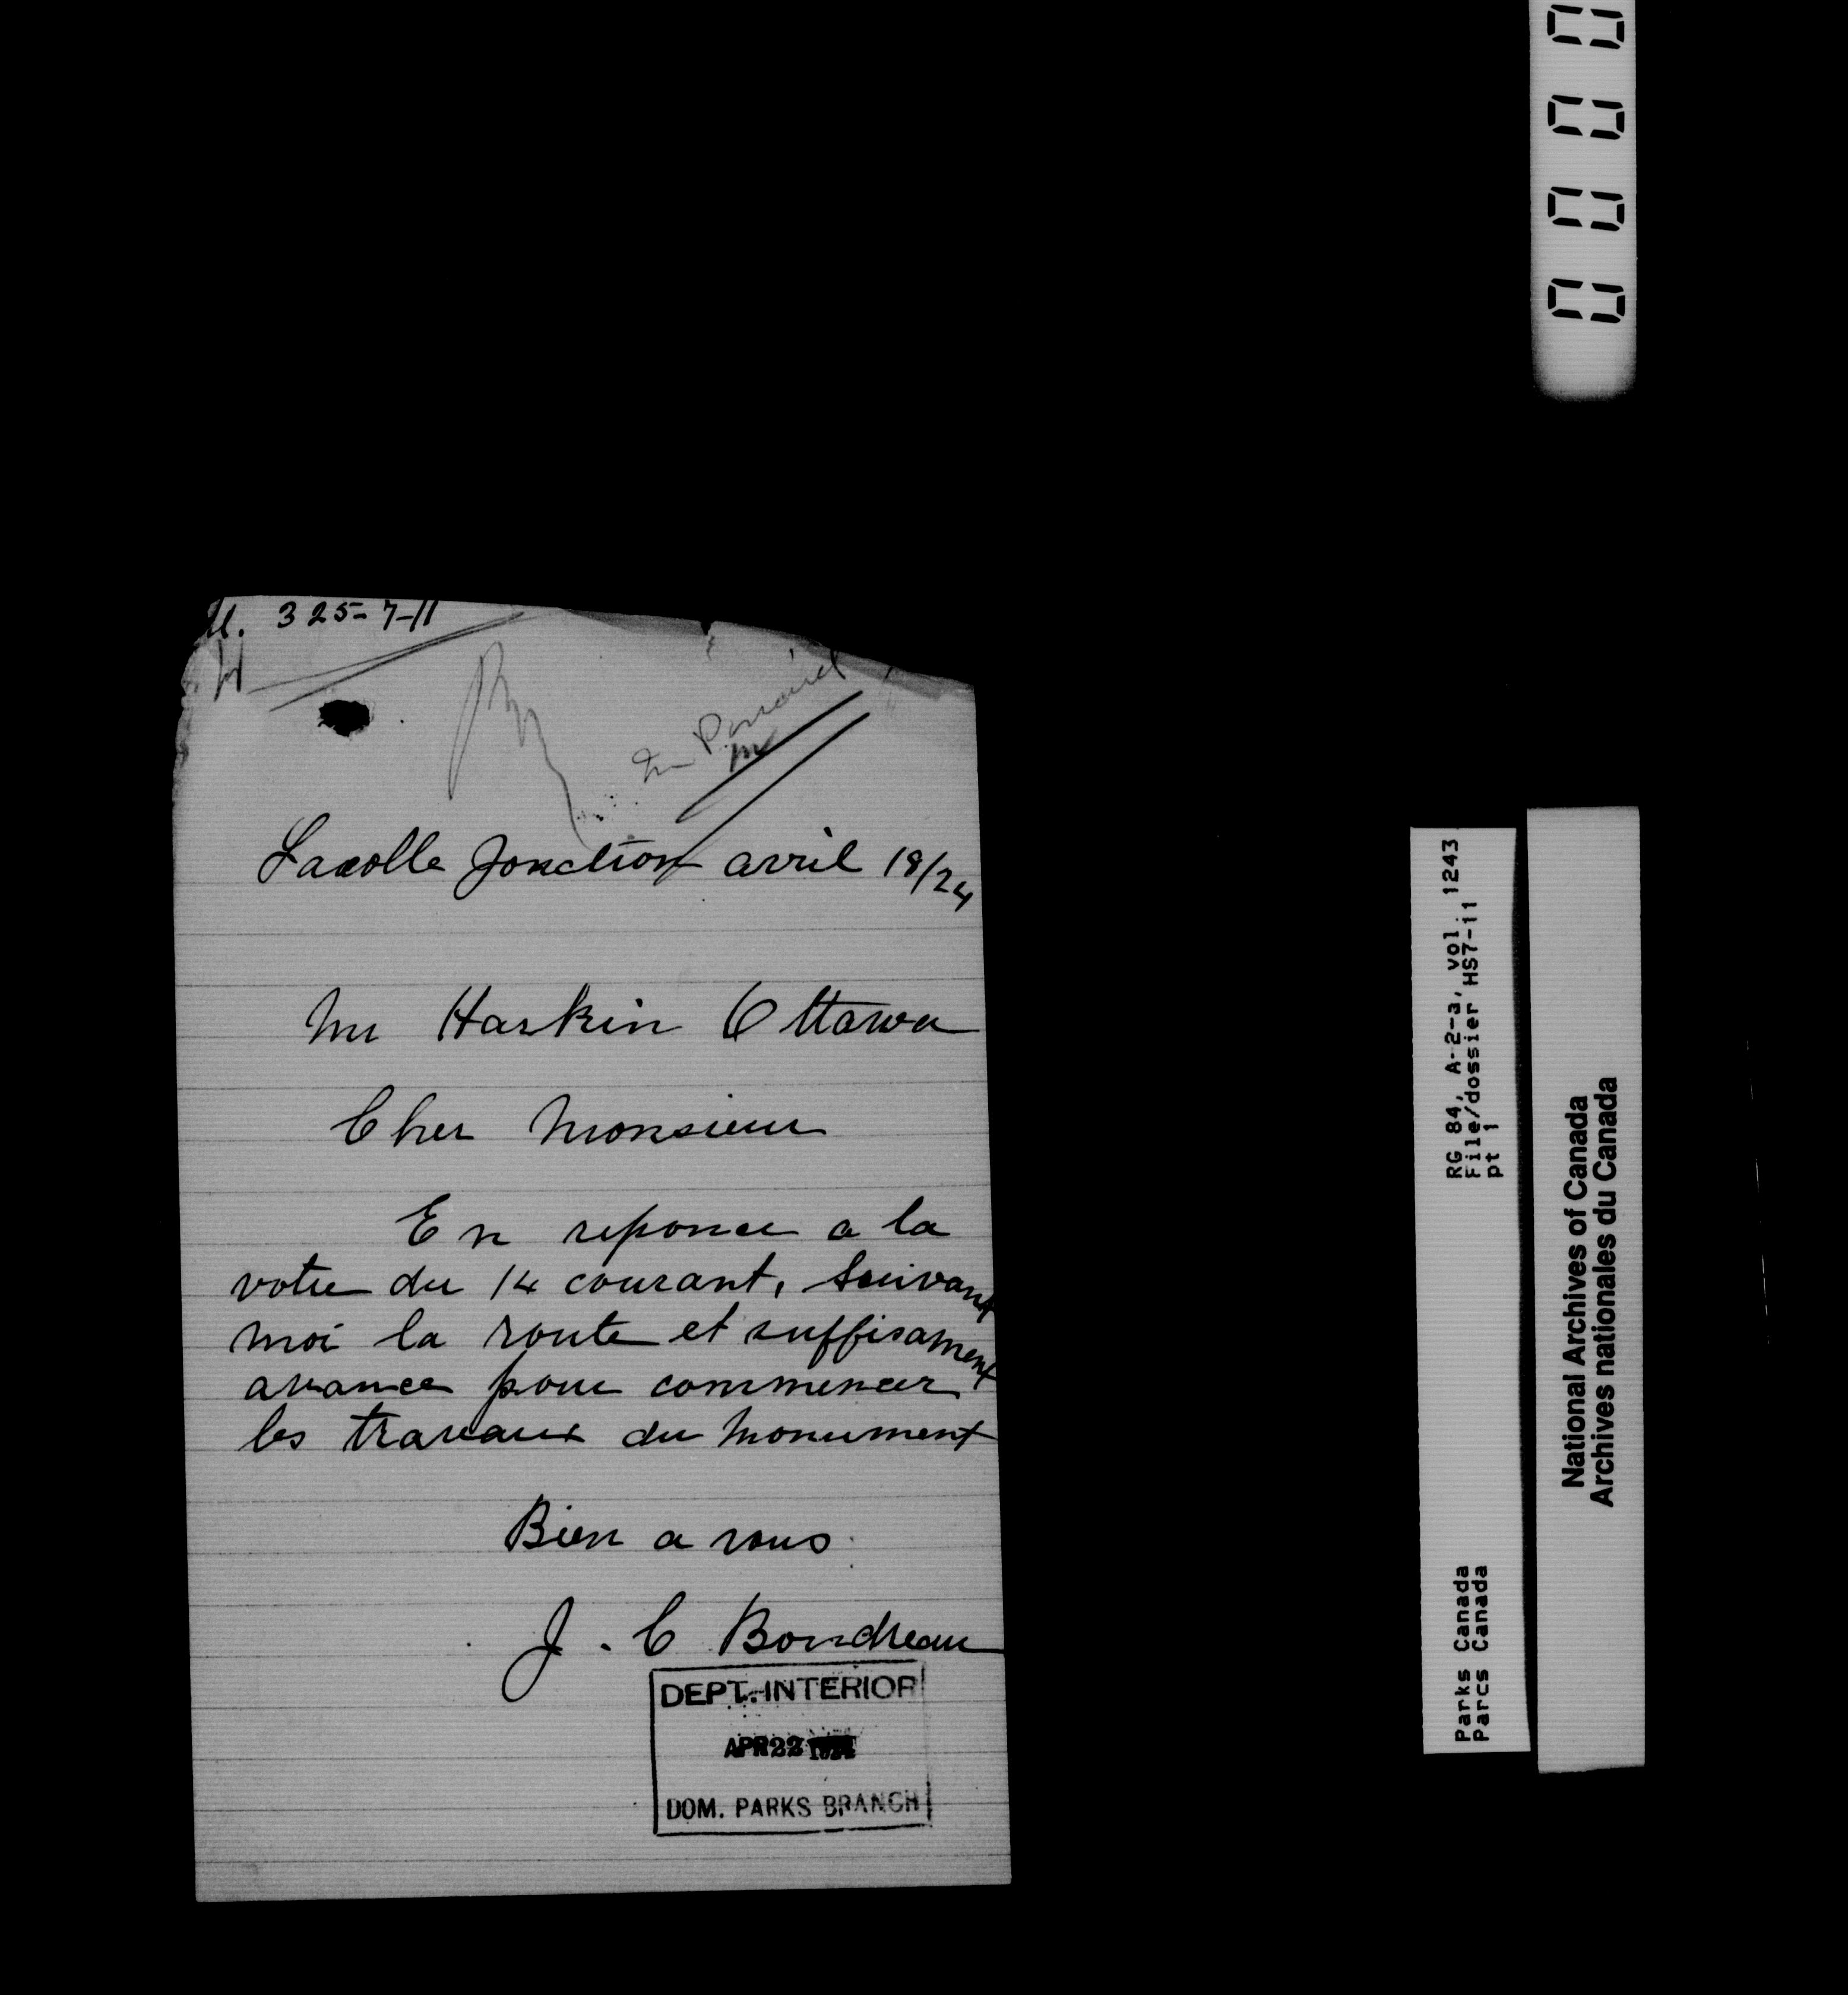 U. 325-7-11
Lacolle Jonction avril 18/24
Mr Harkin Ottawa
Cher Monsieur
En reponce a la
votre du 14 courant, suivant
moi la route et suffisament
avance pour commencer
les travaux du monument
Bien a vous
J. C Boudreau
DEPT. INTERIOR
APR 22
DOM. PARKS BRANCH
0000
RG 84, A-2-a, vol. 1243
File/dossier HS7-11
pt 1
Parks Canada
Parcs Canada
National Archives of Canada
Archives nationales du Canada